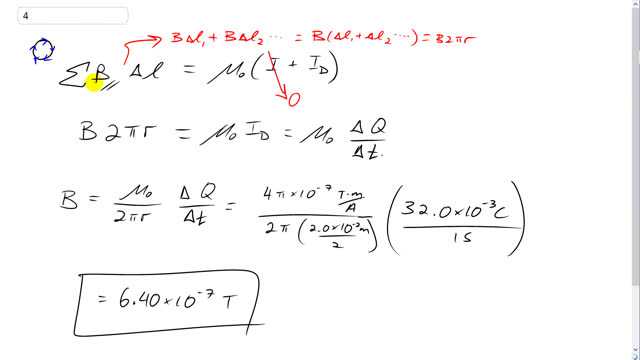 4
B Δl₁ + B Δl₂ ⋯ = B(Δl₁ + Δl₂ ⋯) = B2πr
∑ B∥ Δl = μ₀ (I + I_D)
0
B 2πr = μ₀ I_D = μ₀ ΔQ/Δt
B = μ₀/2πr ΔQ/Δt = 4π×10⁻⁷ T·m/A / 2π (2.0×10⁻²m/2) (32.0×10⁻³C / 1s)
= 6.40×10⁻⁷ T